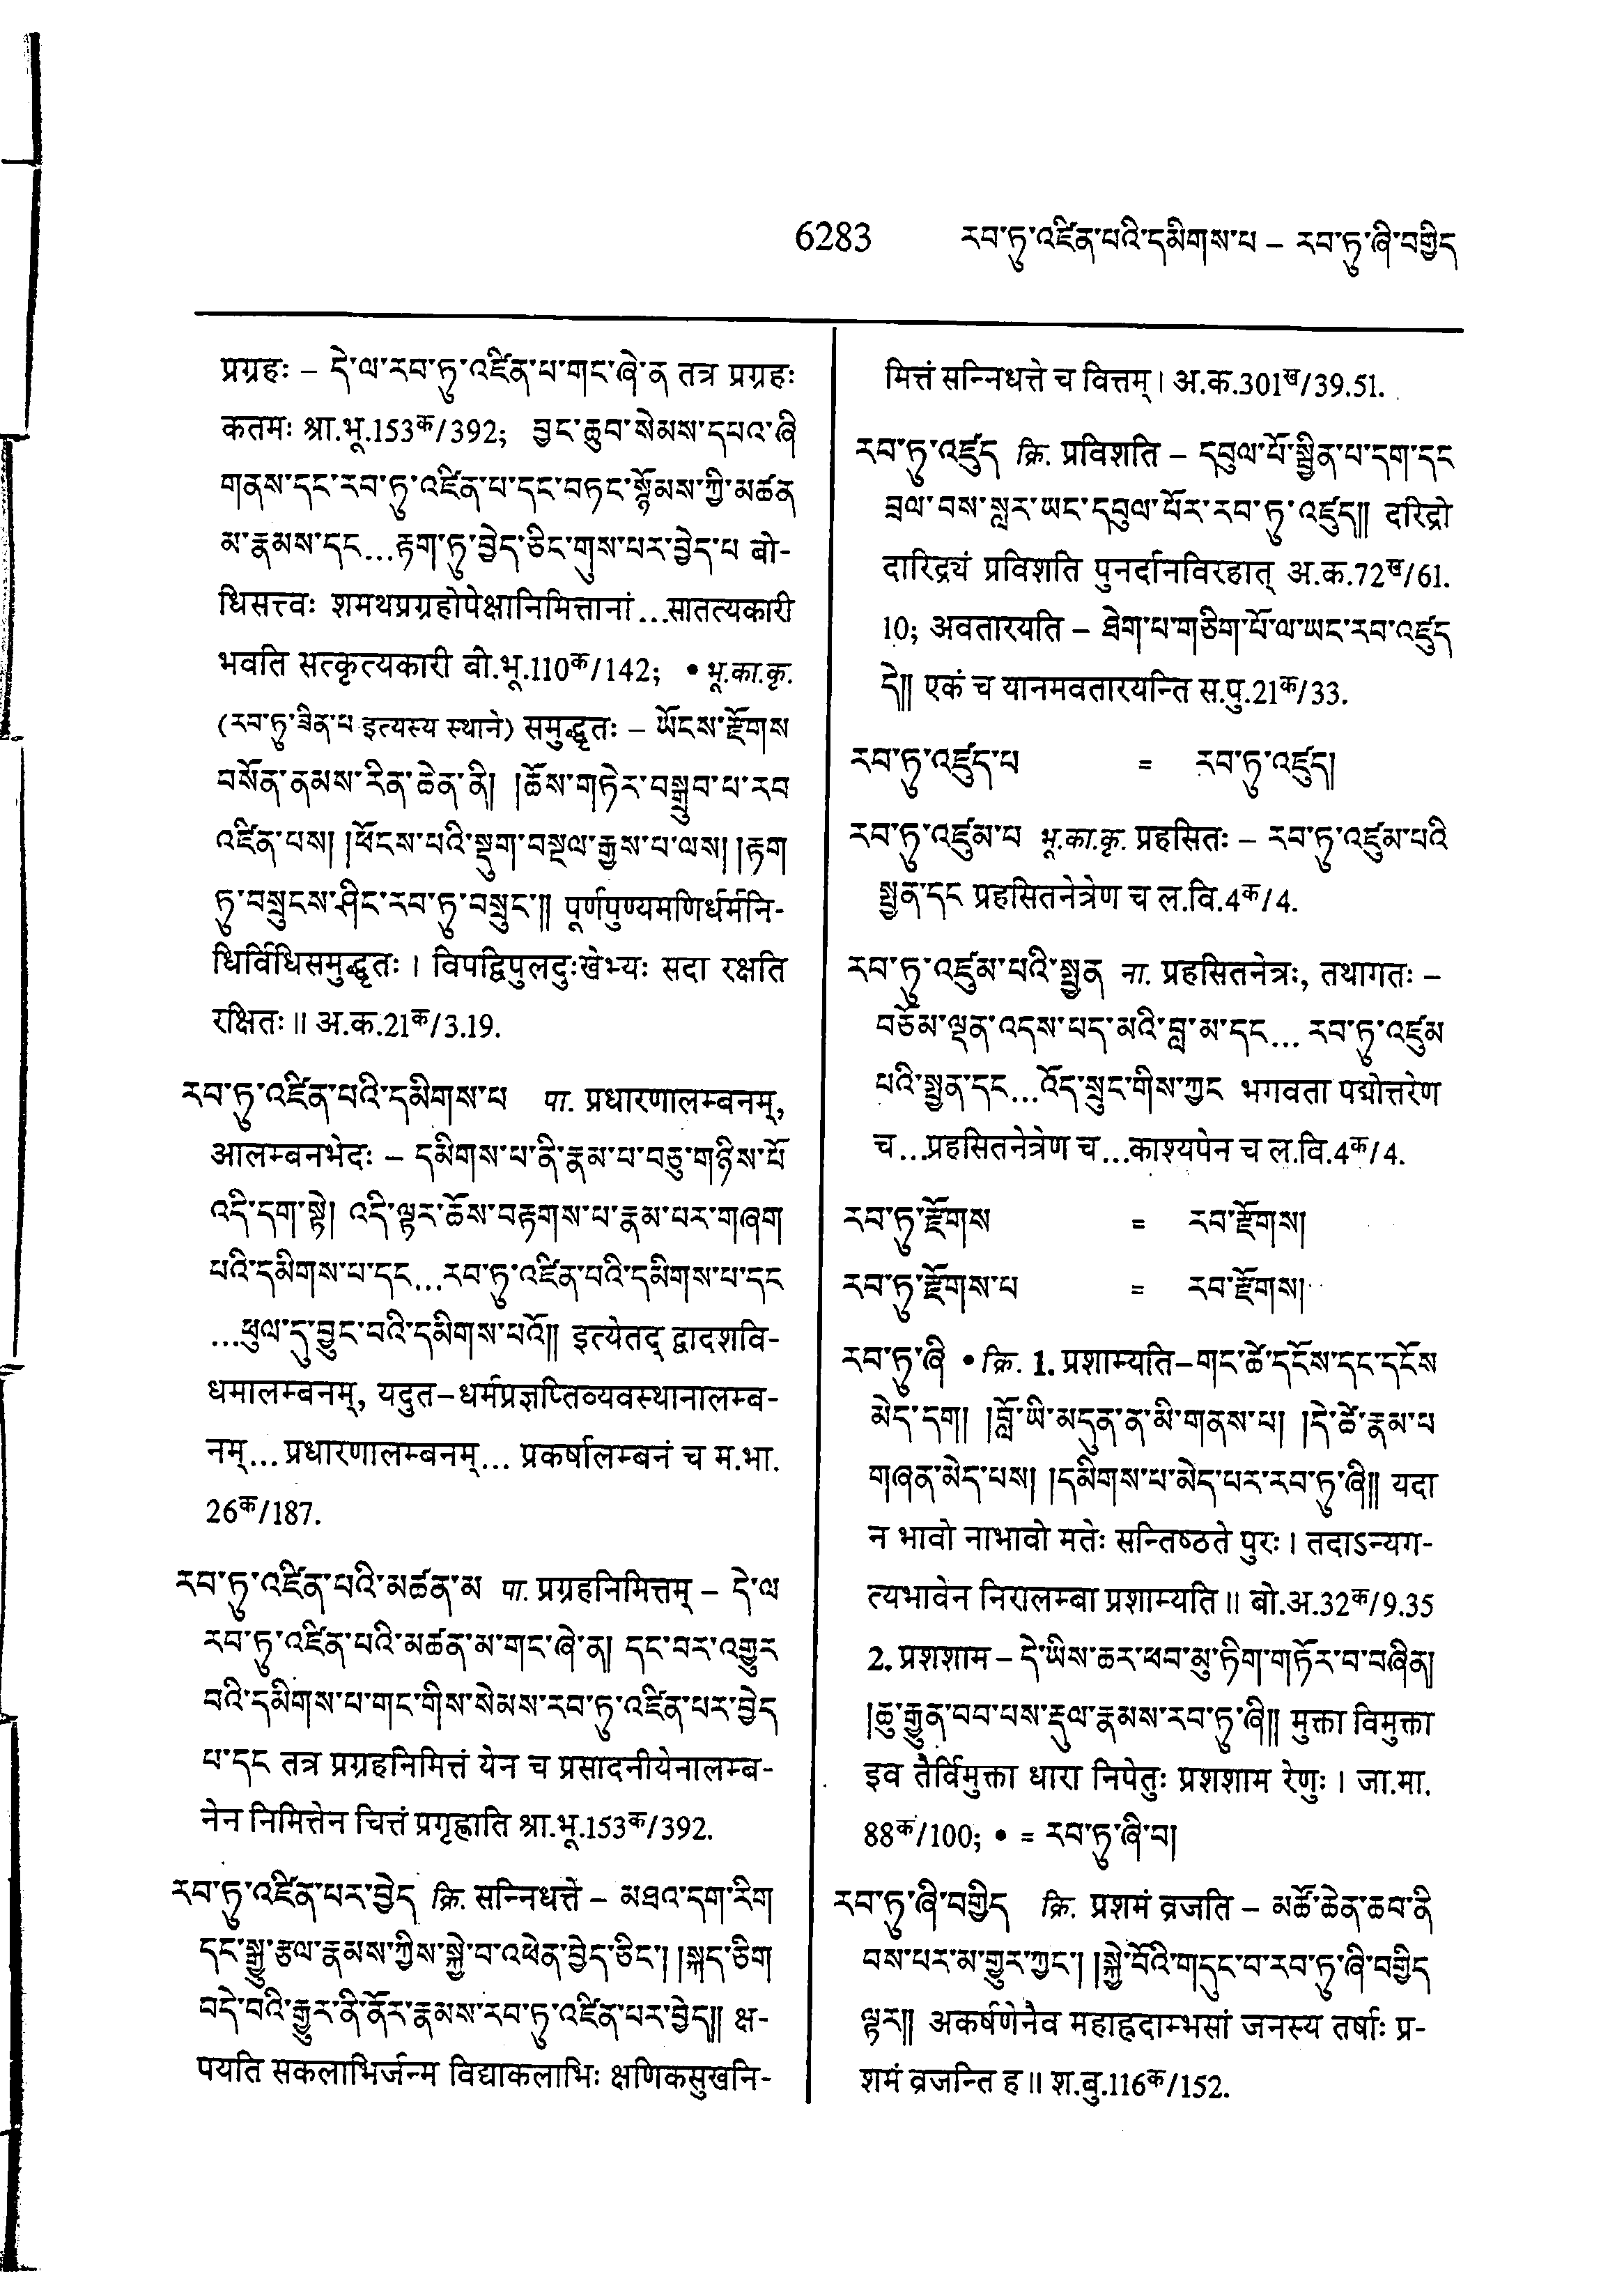 6283 རབ་ཏུ་འཛིན་པའི་དམིགས་པ – རབ་ཏུ་ཞི་བགྱིད
प्रग्रहः – དེ་ལ་རབ་ཏུ་འཛིན་པ་གང་ཞེ་ན तत्र प्रग्रहः
कतमः श्रा.भू.153क/392; བྱང་ཆུབ་སེམས་དཔའ་ཞི
གནས་དང་རབ་ཏུ་འཛིན་པ་དང་བཏང་སྙོམས་ཀྱི་མཚན
མ་རྣམས་དང...རྟག་ཏུ་བྱེད་ཅིང་གུས་པར་བྱེད་པ बो-
धिसत्त्वः शमथप्रग्रहोपेक्षानिमित्तानां...सातत्यकारी
भवति सत्कृत्यकारी बो.भू.110क/142; • भू.का.कृ.
(རབ་ཏུ་ཟིན་པ इत्यस्य स्थाने) समुद्धृतः – ཡོངས་རྫོགས
བསོན་ནམས་རིན་ཆེན་ནི། །ཆོས་གཏེར་བསྒྲུབ་པ་རབ
འཛིན་པས། །ཕོངས་པའི་སྡུག་བསྔལ་རྒྱས་པ་ལས། །རྟག
ཏུ་བསྲུངས་ཤིང་རབ་ཏུ་བསྲུང་༎ पूर्णपुण्यमणिर्धर्मनि-
धिर्विधिसमुद्धृतः। विपद्विपुलदुःखेभ्यः सदा रक्षति
रक्षितः॥ अ.क.21क/3.19.
རབ་ཏུ་འཛིན་པའི་དམིགས་པ पा. प्रधारणालम्बनम्,
आलम्बनभेदः – དམིགས་པ་ནི་རྣམ་པ་བཅུ་གཉིས་པོ
འདི་དག་སྟེ། འདི་ལྟར་ཆོས་བརྟགས་པ་རྣམ་པར་གཞག
པའི་དམིགས་པ་དང...རབ་ཏུ་འཛིན་པའི་དམིགས་པ་དང
...ཕུལ་དུ་བྱུང་བའི་དམིགས་པའོ༎ इत्येतद् द्वादशवि-
धमालम्बनम्, यदुत–धर्मप्रज्ञप्तिव्यवस्थानालम्ब-
नम्... प्रधारणालम्बनम्... प्रकर्षालम्बनं च म.भा.
26क/187.
རབ་ཏུ་འཛིན་པའི་མཚན་མ पा. प्रग्रहनिमित्तम् – དེ་ལ
རབ་ཏུ་འཛིན་པའི་མཚན་མ་གང་ཞེ་ན། དང་བར་འགྱུར
བའི་དམིགས་པ་གང་གིས་སེམས་རབ་ཏུ་འཛིན་པར་བྱེད
པ་དང तत्र प्रग्रहनिमित्तं येन च प्रसादनीयेनालम्ब-
नेन निमित्तेन चित्तं प्रगृह्णाति श्रा.भू.153क/392.
རབ་ཏུ་འཛིན་པར་བྱེད क्रि. सन्निधत्ते – མཐའ་དག་རིག
དང་སྒྱུ་རྩལ་རྣམས་ཀྱིས་སྐྱེ་བ་འཕེན་བྱེད་ཅིང་། །སྐད་ཅིག
བདེ་བའི་རྒྱུར་ནི་ནོར་རྣམས་རབ་ཏུ་འཛིན་པར་བྱེད༎ क्ष-
पयति सकलाभिर्जन्म विद्याकलाभिः क्षणिकसुखनि-
मित्तं सन्निधत्ते च वित्तम्। अ.क.301ख/39.51.
རབ་ཏུ་འཛུད क्रि. प्रविशति – དབུལ་པོ་སྦྱིན་པ་དག་དང
བྲལ་བས་སླར་ཡང་དབུལ་པོར་རབ་ཏུ་འཛུད༎ दरिद्रो
दारिद्र्यं प्रविशति पुनर्दानविरहात् अ.क.72ख/61.
10; अवतारयति – ཐེག་པ་གཅིག་པོ་ལ་ཡང་རབ་འཛུད
དེ༎ एकं च यानमवतारयन्ति स.पु.21क/33.
རབ་ཏུ་འཛུད་པ = རབ་ཏུ་འཛུད།
རབ་ཏུ་འཛུམ་པ भू.का.कृ. प्रहसितः – རབ་ཏུ་འཛུམ་པའི
སྤྱན་དང प्रहसितनेत्रेण च ल.वि.4क/4.
རབ་ཏུ་འཛུམ་པའི་སྤྱན ना. प्रहसितनेत्रः, तथागतः –
བཅོམ་ལྡན་འདས་པད་མའི་བླ་མ་དང... རབ་ཏུ་འཛུམ
པའི་སྤྱན་དང...འོད་སྲུང་གིས་ཀྱང भगवता पद्मोत्तरेण
च...प्रहसितनेत्रेण च...काश्यपेन च ल.वि.4क/4.
རབ་ཏུ་རྫོགས = རབ་རྫོགས།
རབ་ཏུ་རྫོགས་པ = རབ་རྫོགས།
རབ་ཏུ་ཞི • क्रि. 1. प्रशाम्यति–གང་ཚེ་དངོས་དང་དངོས
མེད་དག། །བློ་ཡི་མདུན་ན་མི་གནས་པ། །དེ་ཚེ་རྣམ་པ
གཞན་མེད་པས། །དམིགས་པ་མེད་པར་རབ་ཏུ་ཞི༎ यदा
न भावो नाभावो मतेः सन्तिष्ठते पुरः। तदाऽन्यग-
त्यभावेन निरालम्बा प्रशाम्यति॥ बो.अ.32क/9.35
2. प्रशशाम – དེ་ཡིས་ཆར་ཕབ་མུ་ཏིག་གཏོར་བ་བཞིན།
།ཆུ་རྒྱུན་བབ་པས་རྡུལ་རྣམས་རབ་ཏུ་ཞི༎ मुक्ता विमुक्ता
इव तैर्विमुक्ता धारा निपेतुः प्रशशाम रेणुः। जा.मा.
88क/100; • = རབ་ཏུ་ཞི་བ།
རབ་ཏུ་ཞི་བགྱིད क्रि. प्रशमं व्रजति – མཚོ་ཆེན་ཆབ་ནི
བས་པར་མ་གྱུར་ཀྱང་། །སྐྱེ་བོའི་གདུང་བ་རབ་ཏུ་ཞི་བགྱིད
ལྟར༎ अकर्षणेनैव महाह्रदाम्भसां जनस्य तर्षाः प्र-
शमं व्रजन्ति ह॥ श.बु.116क/152.